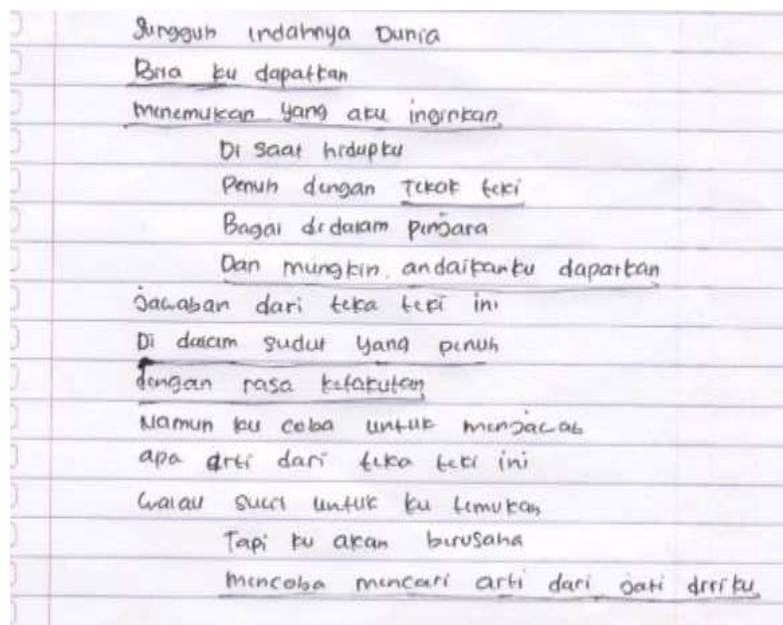 Sungguh indahnya Dunia
Bila ku dapatkan
menemukan yang aku inginkan
Di saat hidupku
Penuh dengan Tekak teki
Bagai didalam penjara
Dan mungkin andaikanku dapatkan
jawaban dari teka teki ini
Di dalam sudut yang penuh
dengan rasa ketakutan
Namun ku coba untuk menjawab
apa arti dari teka teki ini
walau sulit untuk ku temukan
Tapi ku akan berusaha
mencoba mencari arti dari jati diriku